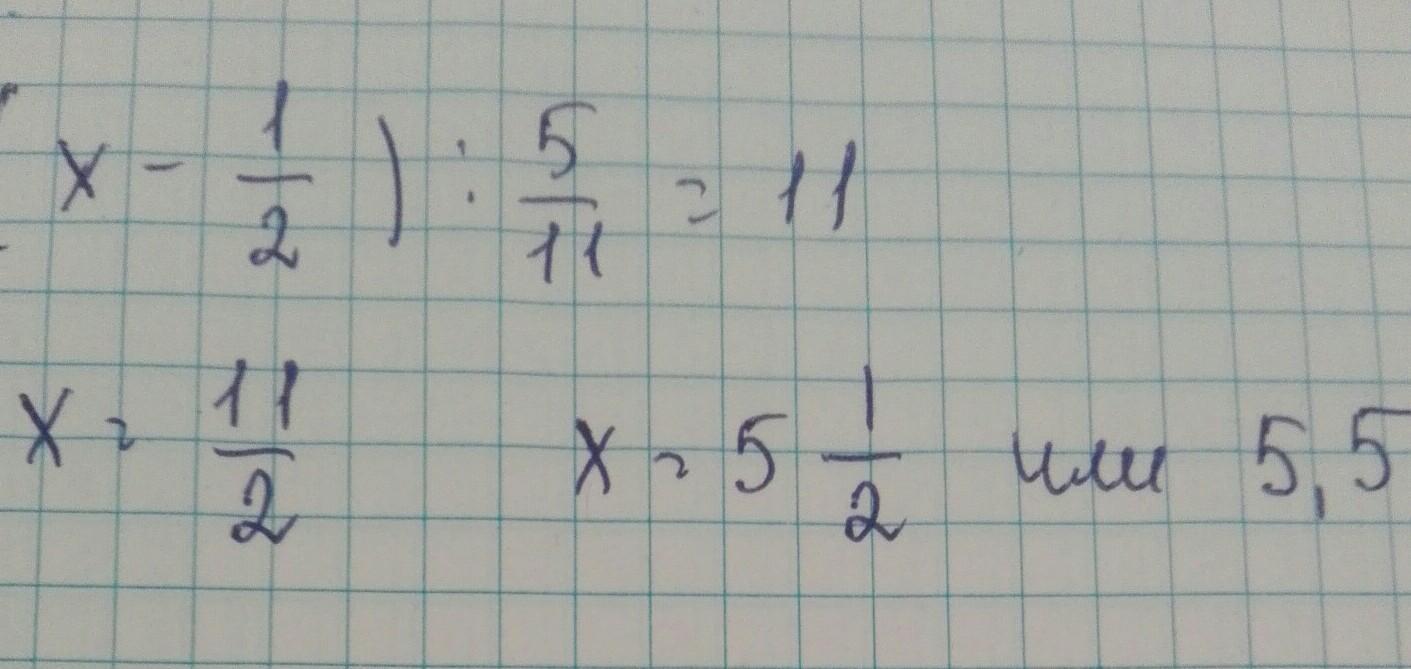 (x - 1/2) : 5/11 = 11
x = 11/2 x = 5 1/2 или 5,5